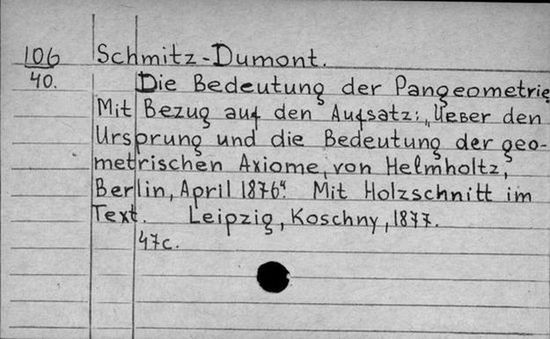 106 Schmitz-Dumont.
40. Die Bedeutung der Pangeometrie
Mit Bezug auf den Aufsatz: „Ueber den
Ursprung und die Bedeutung der geo-
metrischen Axiome, von Helmholtz,
Berlin, April 1876". Mit Holzschnitt im
Text. Leipzig, Koschny, 1877.
47c.